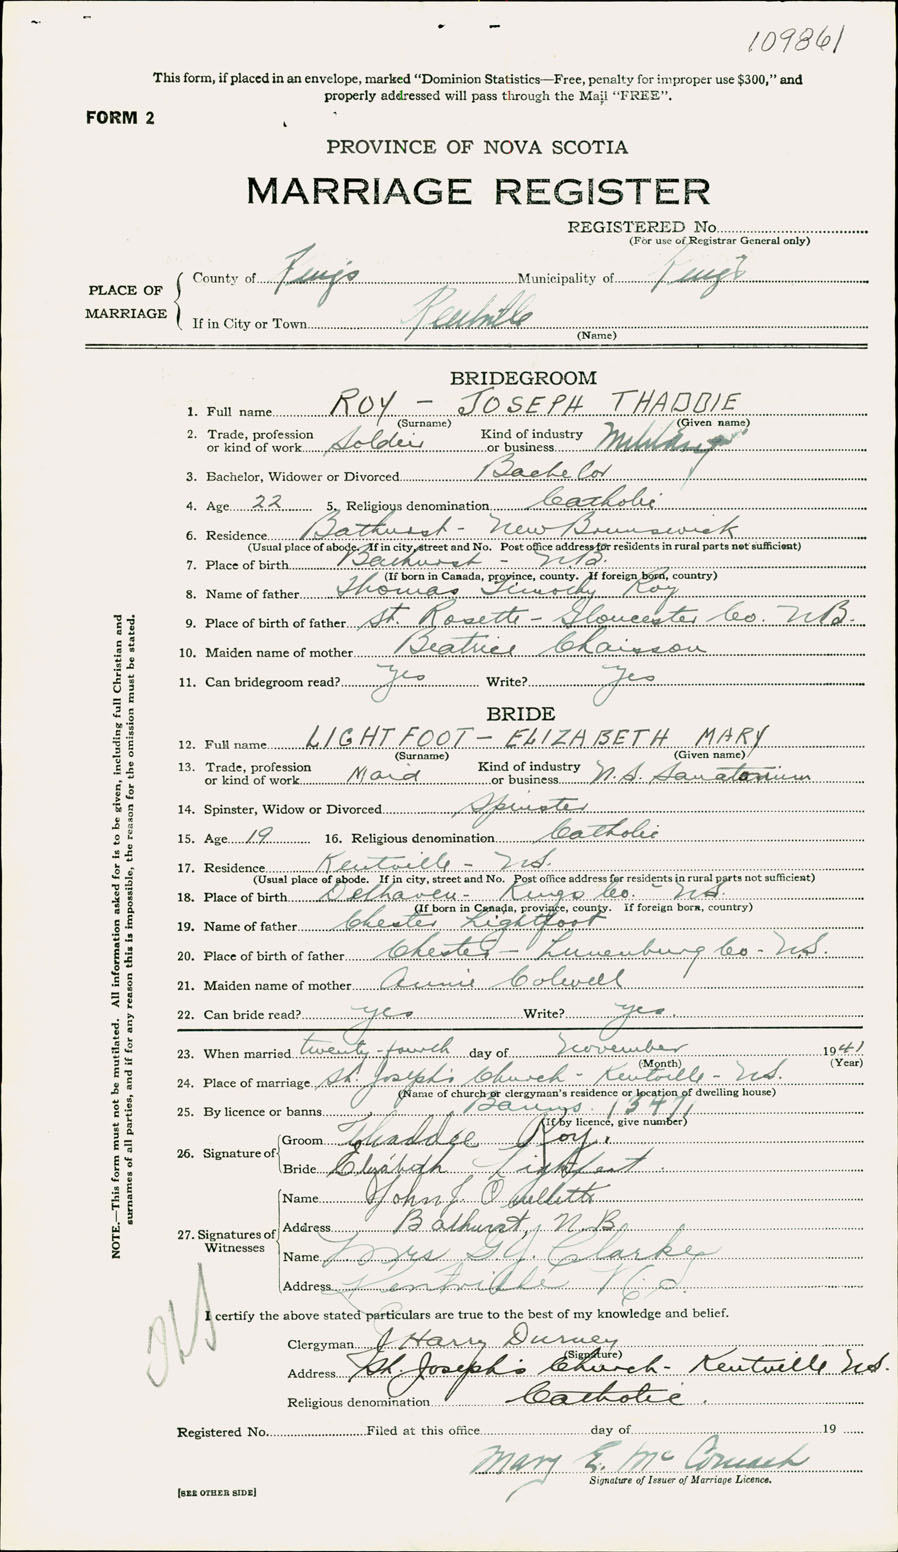 109861
This form, if placed in an envelope, marked "Dominion Statistics—Free, penalty for improper use $300," and
properly addressed will pass through the Mail "FREE".
FORM 2
PROVINCE OF NOVA SCOTIA
MARRIAGE REGISTER
REGISTERED No.
(For use of Registrar General only)
PLACE OF MARRIAGE
County of Kings Municipality of Kings
If in City or Town Kentville
(Name)
BRIDEGROOM
1. Full name ROY - JOSEPH THADDIE
(Surname) (Given name)
2. Trade, profession or kind of work Soldier Kind of industry or business Military
3. Bachelor, Widower or Divorced Bachelor
4. Age 22 5. Religious denomination Catholic
6. Residence Bathurst - New Brunswick
(Usual place of abode. If in city, street and No. Post office address for residents in rural parts not sufficient)
7. Place of birth Bathurst - N.B.
(If born in Canada, province, county. If foreign born, country)
8. Name of father Thomas Timothy Roy
9. Place of birth of father St. Rosette - Gloucester Co. N.B.
10. Maiden name of mother Beatrice Chaisson
11. Can bridegroom read? Yes Write? Yes
BRIDE
12. Full name LIGHTFOOT - ELIZABETH MARY
(Surname) (Given name)
13. Trade, profession or kind of work Maid Kind of industry or business N.S. Sanatorium
14. Spinster, Widow or Divorced Spinster
15. Age 19 16. Religious denomination Catholic
17. Residence Kentville - N.S.
(Usual place of abode. If in city, street and No. Post office address for residents in rural parts not sufficient)
18. Place of birth Delhaven - Kings Co. - N.S.
(If born in Canada, province, county. If foreign born, country)
19. Name of father Chester Lightfoot
20. Place of birth of father Chester - Lunenburg Co - N.S.
21. Maiden name of mother Annie Colwell
22. Can bride read? yes Write? yes.
23. When married twenty-fourth day of November 1941
(Month) (Year)
24. Place of marriage St. Joseph's Church - Kentville - N.S.
(Name of church or clergyman's residence or location of dwelling house)
25. By licence or banns Banns
(If by licence, give number)
26. Signature of
Groom Thaddee Roy.
Bride Elizabeth Lightfoot.
27. Signatures of Witnesses
Name John J. Ouellette
Address Bathurst, N.B.
Name Mrs G.Y. Clarke
Address Kentville N.S.
I certify the above stated particulars are true to the best of my knowledge and belief.
Clergyman J Harry Durney
(Signature)
Address St. Joseph's Church - Kentville N.S.
Religious denomination Catholic.
Registered No. Filed at this office day of 19
Mary E. McCormack
Signature of Issuer of Marriage Licence.
[SEE OTHER SIDE]
NOTE.—This form must not be mutilated. All information asked for is to be given, including full Christian and
surnames of all parties, and if for any reason this is impossible, the reason for the omission must be stated.